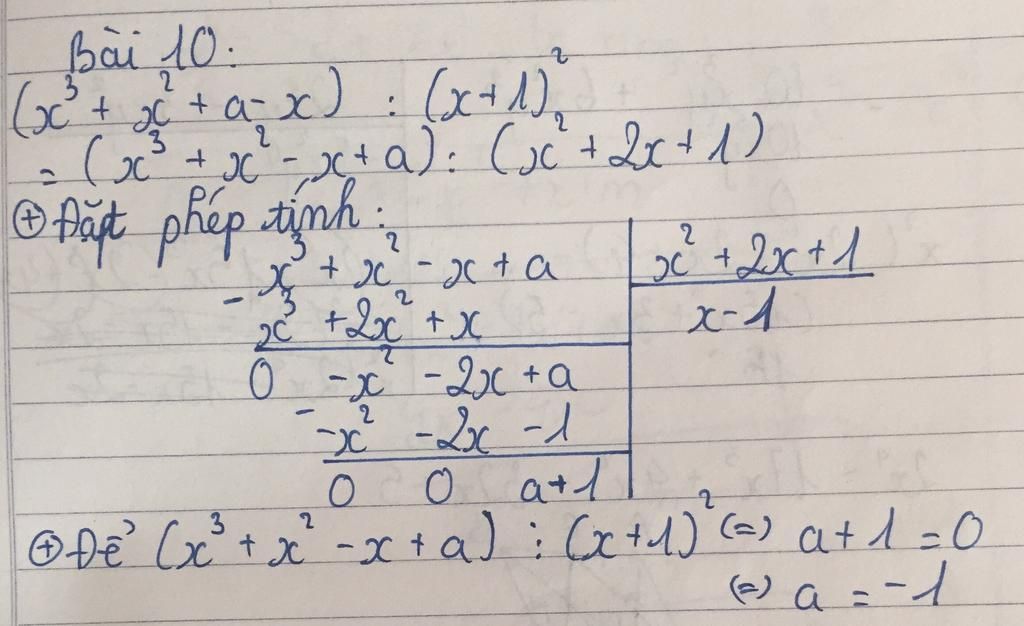 Bài 10:
(x³ + x² + a - x) : (x+1)²
= (x³ + x² - x + a) : (x² + 2x + 1)
⊕ Đặt phép tính:
- x³ + x² - x + a | x² + 2x + 1
x³ + 2x² + x | x - 1
0 - x² - 2x + a
- -x² - 2x - 1
0 0 a+1
⊕ Để (x³ + x² - x + a) ⋮ (x+1)² (=) a + 1 = 0
(=) a = -1